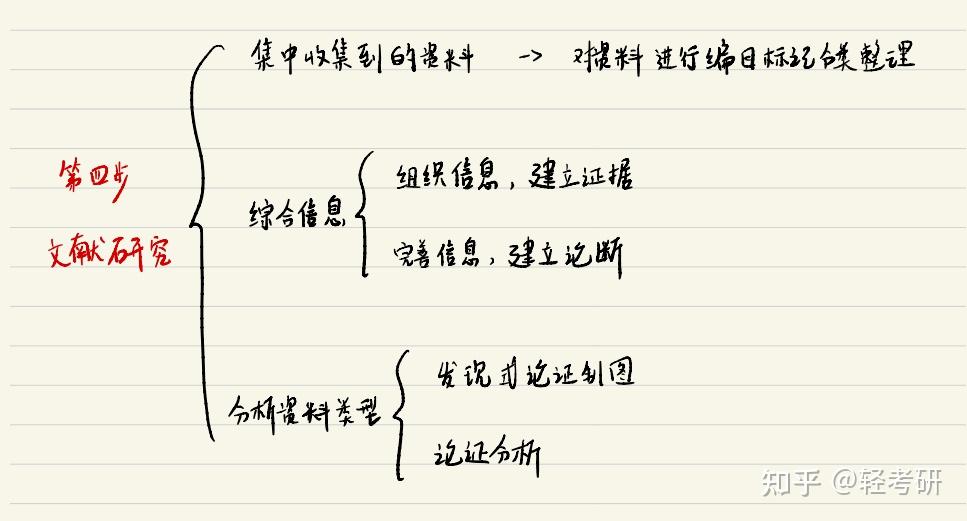 集中收集到的资料 → 对资料进行编目标记分类整理
第四步
文献研究
综合信息
组织信息，建立证据
完善信息，建立论断
分析资料类型
发现式论证制图
论证分析
知乎 @轻考研